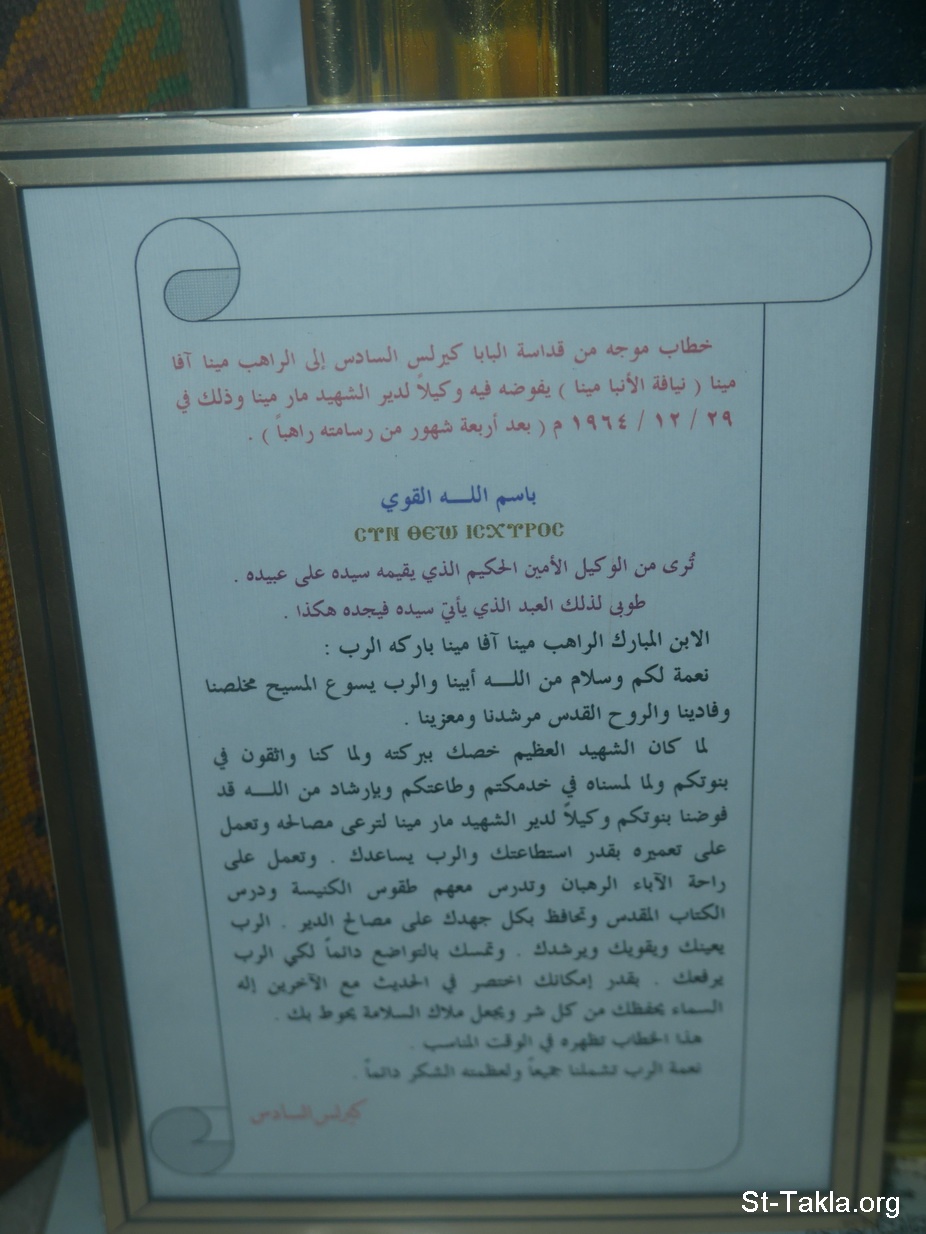 خطاب موجه من قداسة البابا كيرلس السادس إلى الراهب مينا آفا
مينا ( نيافة الأنبا مينا ) يفوضه فيه وكيلاً لدير الشهيد مار مينا وذلك في
٢٩ / ١٢ / ١٩٦٤ م ( بعد أربعة شهور من رسامته راهباً ) .
باسم اللـــه القوي
ⲤⲨⲚ ⲐⲈⲰ ⲒⲤⲬⲨⲢⲞⲤ
تُرى من الوكيل الأمين الحكيم الذي يقيمه سيده على عبيده .
طوبى لذلك العبد الذي يأتي سيده فيجده هكذا .
الابن المبارك الراهب مينا آفا مينا باركه الرب :
نعمة لكم وسلام من اللـــه أبينا والرب يسوع المسيح مخلصنا
وفادينا والروح القدس مرشدنا ومعزينا .
لما كان الشهيد العظيم خصك ببركته ولما كنا واثقون في
بنوتكم ولما لمسناه في خدمكتم وطاعتكم وبإرشاد من اللـــه قد
فوضنا بنوتكم وكيلاً لدير الشهيد مار مينا لترعى مصالحه وتعمل
على تعميره بقدر استطاعتك والرب يساعدك . وتعمل على
راحة الآباء الرهبان وتدرس معهم طقوس الكنيسة ودرس
الكتاب المقدس وتحافظ بكل جهدك على مصالح الدير . الرب
يعينك ويقويك ويرشدك . وتمسك بالتواضع دائماً لكي الرب
يرفعك . بقدر إمكانك اختصر في الحديث مع الآخرين إله
السماء يحفظك من كل شر ويجعل ملاك السلامة يحوط بك .
هذا الخطاب تظهره في الوقت المناسب .
نعمة الرب تشملنا جميعاً ولعظمته الشكر دائماً .
كيرلس السادس
St-Takla.org